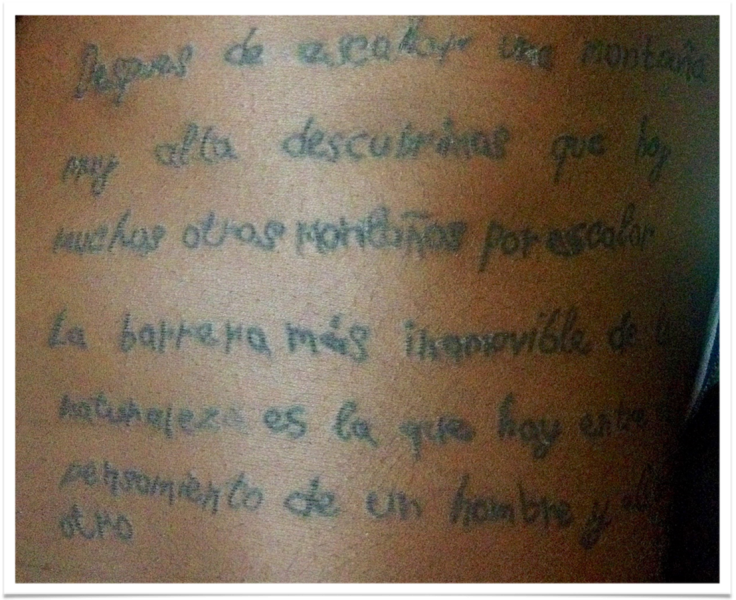 Despues de escalar una montaña
muy alta descubrimos que hay
muchas otras montañas por escalar
La barrera más inamovible de la
naturaleza es la que hay entre
pensamiento de un hombre y el
otro